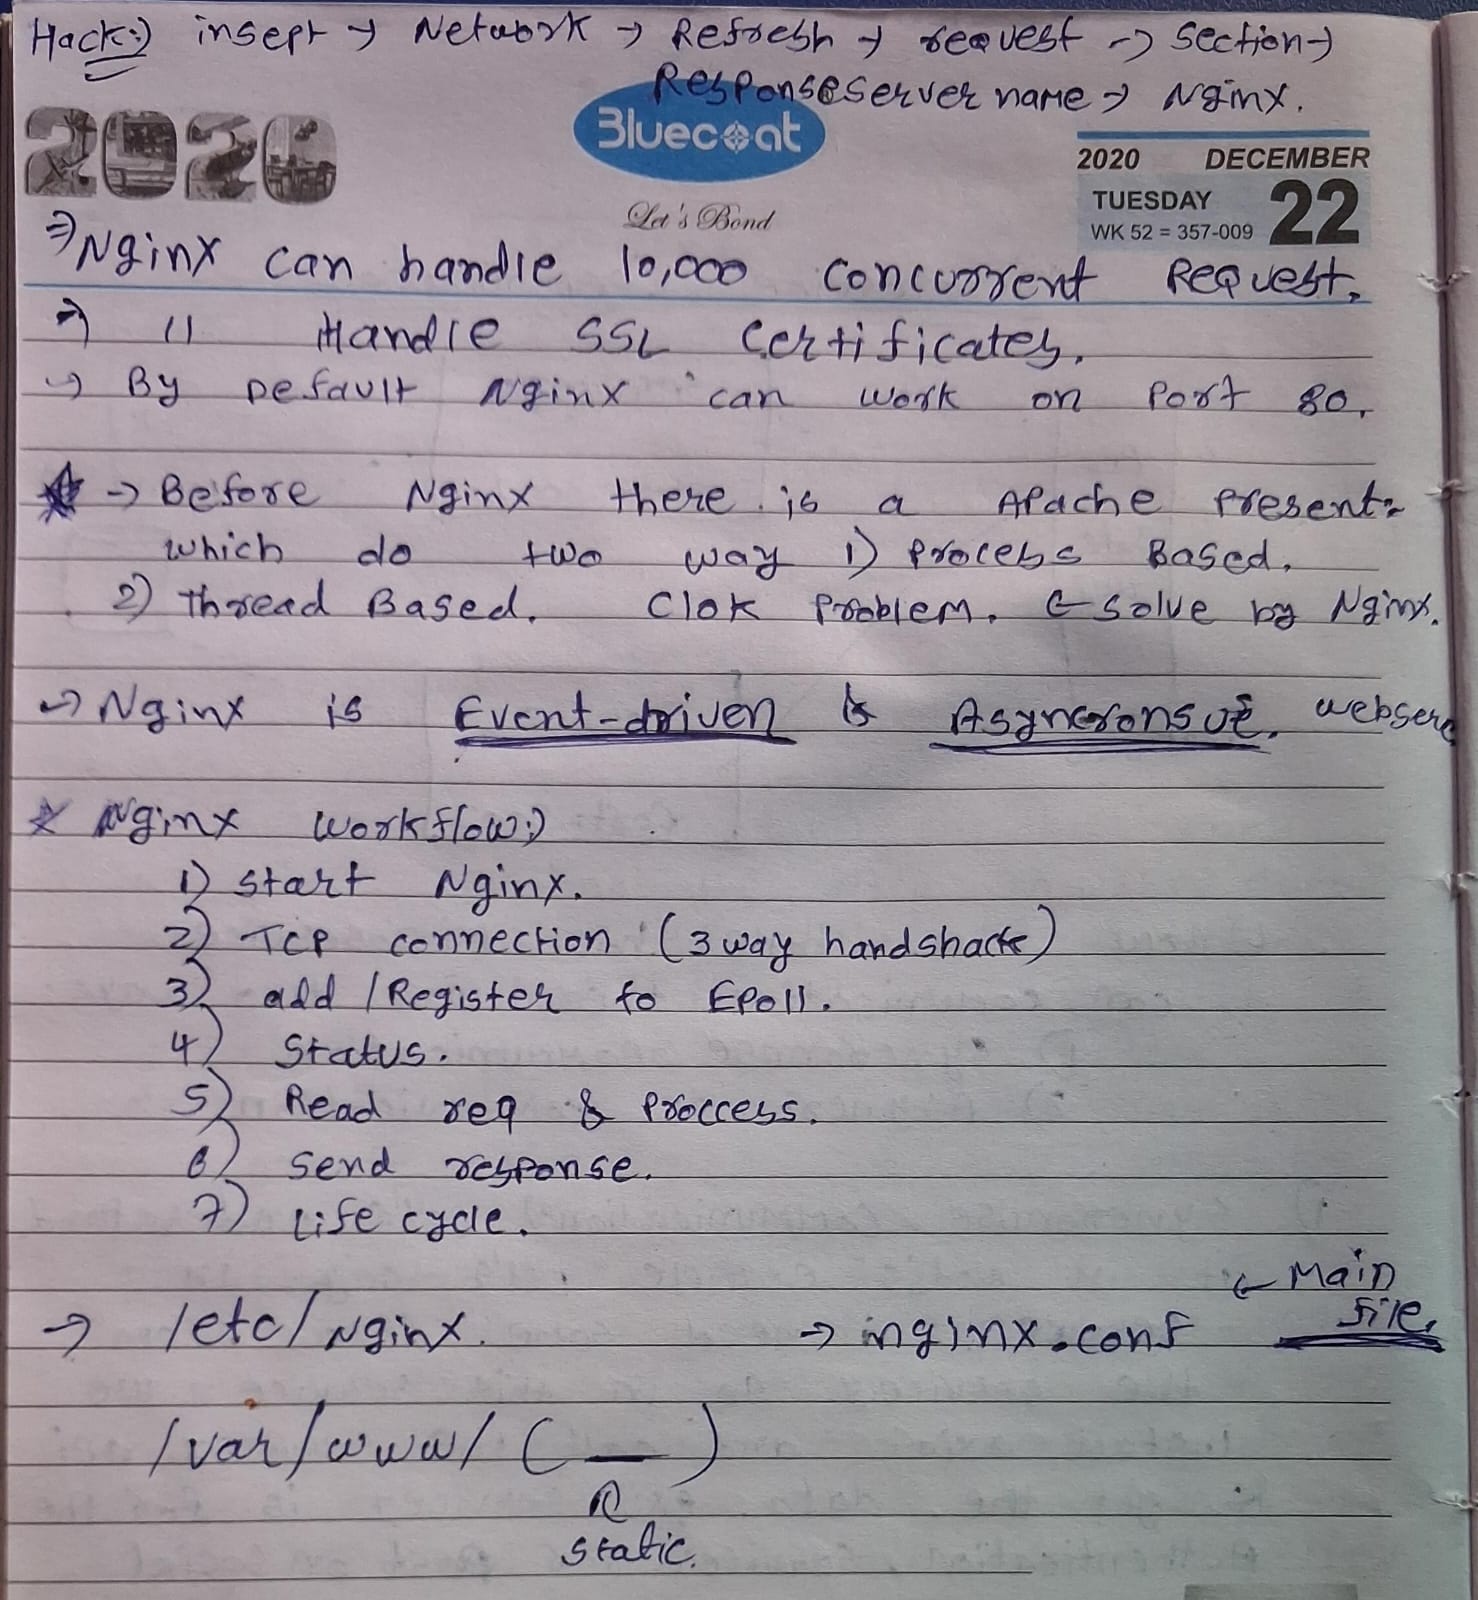 Hack:) insept → Network → Refresh → request → section →
Response server name → Nginx.
2020
Bluecoat
Let's Bond
2020 DECEMBER
TUESDAY
WK 52 = 357-009
22
⇒ Nginx can handle 10,000 concurrent Request.
→ 11 Handle SSL Certificates.
→ By Default Nginx can work on Port 80.
★ → Before Nginx there is a APache Present.
which do two way 1) Process Based.
2) Thread Based. C10K Problem. ← solve by Nginx.
→ Nginx is Event-driven & Asyncronsue. webserv
* Nginx workflow:)
1) start Nginx.
2) TCP connection (3 way handshack)
3) add / Register to EPoll.
4) Status.
5) Read req & Proccess.
6) send response.
7) Life cycle.
← Main
→ /etc/Nginx. → nginx.conf file.
/var/www/ ( __ )
static.